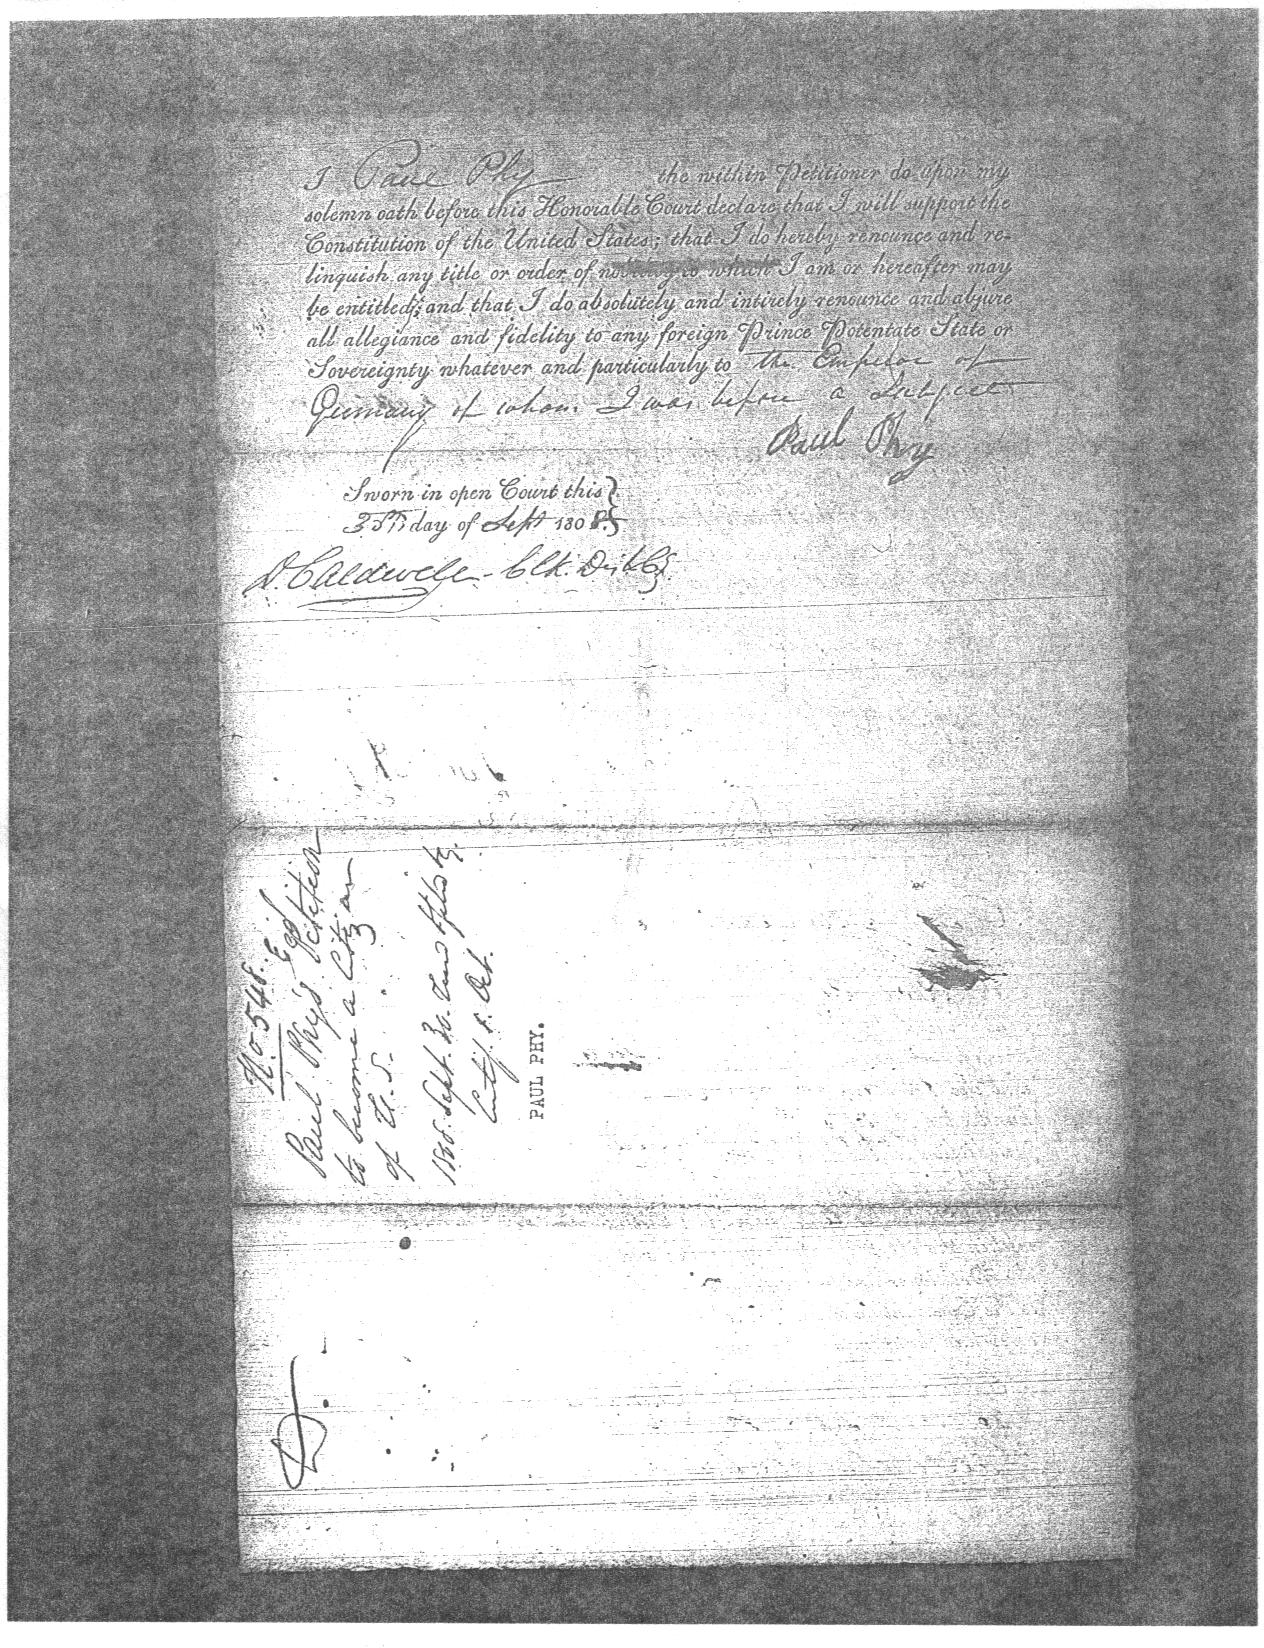 I Paul Phy the within Petitioner do upon my
solemn oath before this Honorable Court declare that I will support the
Constitution of the United States; that I do hereby renounce and re-
linquish any title or order of nobility to which I am or hereafter may
be entitled; and that I do absolutely and intirely renounce and abjure
all allegiance and fidelity to any foreign Prince Potentate State or
Sovereignty whatever and particularly to the Emperor of
Germany of whom I was before a Subject
Paul Phy
Sworn in open Court this
day of Sept 1808.
D. Caldwell Clk. Dist Ct
No 548.
Paul Phy's Petition
to become a Citizen
of U.S.
1808. Sept. 30.
PAUL PHY.